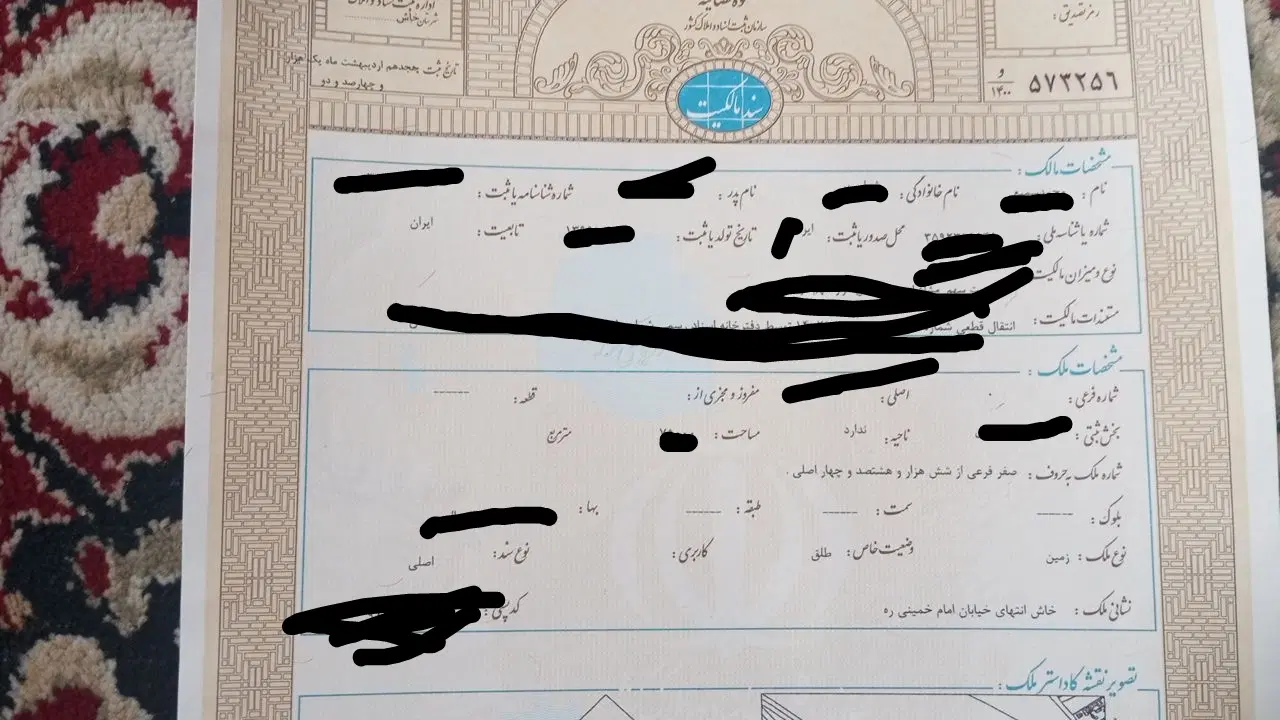 سازمان ثبت اسناد و املاک کشور
رمز تصدیق :
شهرستان خاش
تاریخ ثبت هجدهم اردیبهشت ماه یک هزار
و چهارصد و دو
۵۷۳۲۵۶ و ۱۴۰۰
سند مالکیت
مشخصات مالک :
نام : نام خانوادگی : نام پدر : شماره شناسنامه یا ثبت :
شماره یا شناسه ملی : محل صدور یا ثبت : تاریخ تولد یا ثبت : تابعیت : ایران
نوع و میزان مالکیت
مستندات مالکیت : انتقال قطعی
مشخصات ملک :
شماره فرعی : ۰ اصلی : مفروز و مجزی از : قطعه : ------
بخش ثبتی : ناحیه : ندارد مساحت : مترمربع
شماره ملک به حروف : صفر فرعی از شش هزار و هشتصد و چهار اصلی .
بلوک : ------ سمت : ------ طبقه : ------ بها :
نوع ملک : زمین وضعیت خاص : طلق کاربری : نوع سند : اصلی
نشانی ملک : خاش انتهای خیابان امام خمینی ره کد پستی :
تصویر نقشه کاداستر ملک :